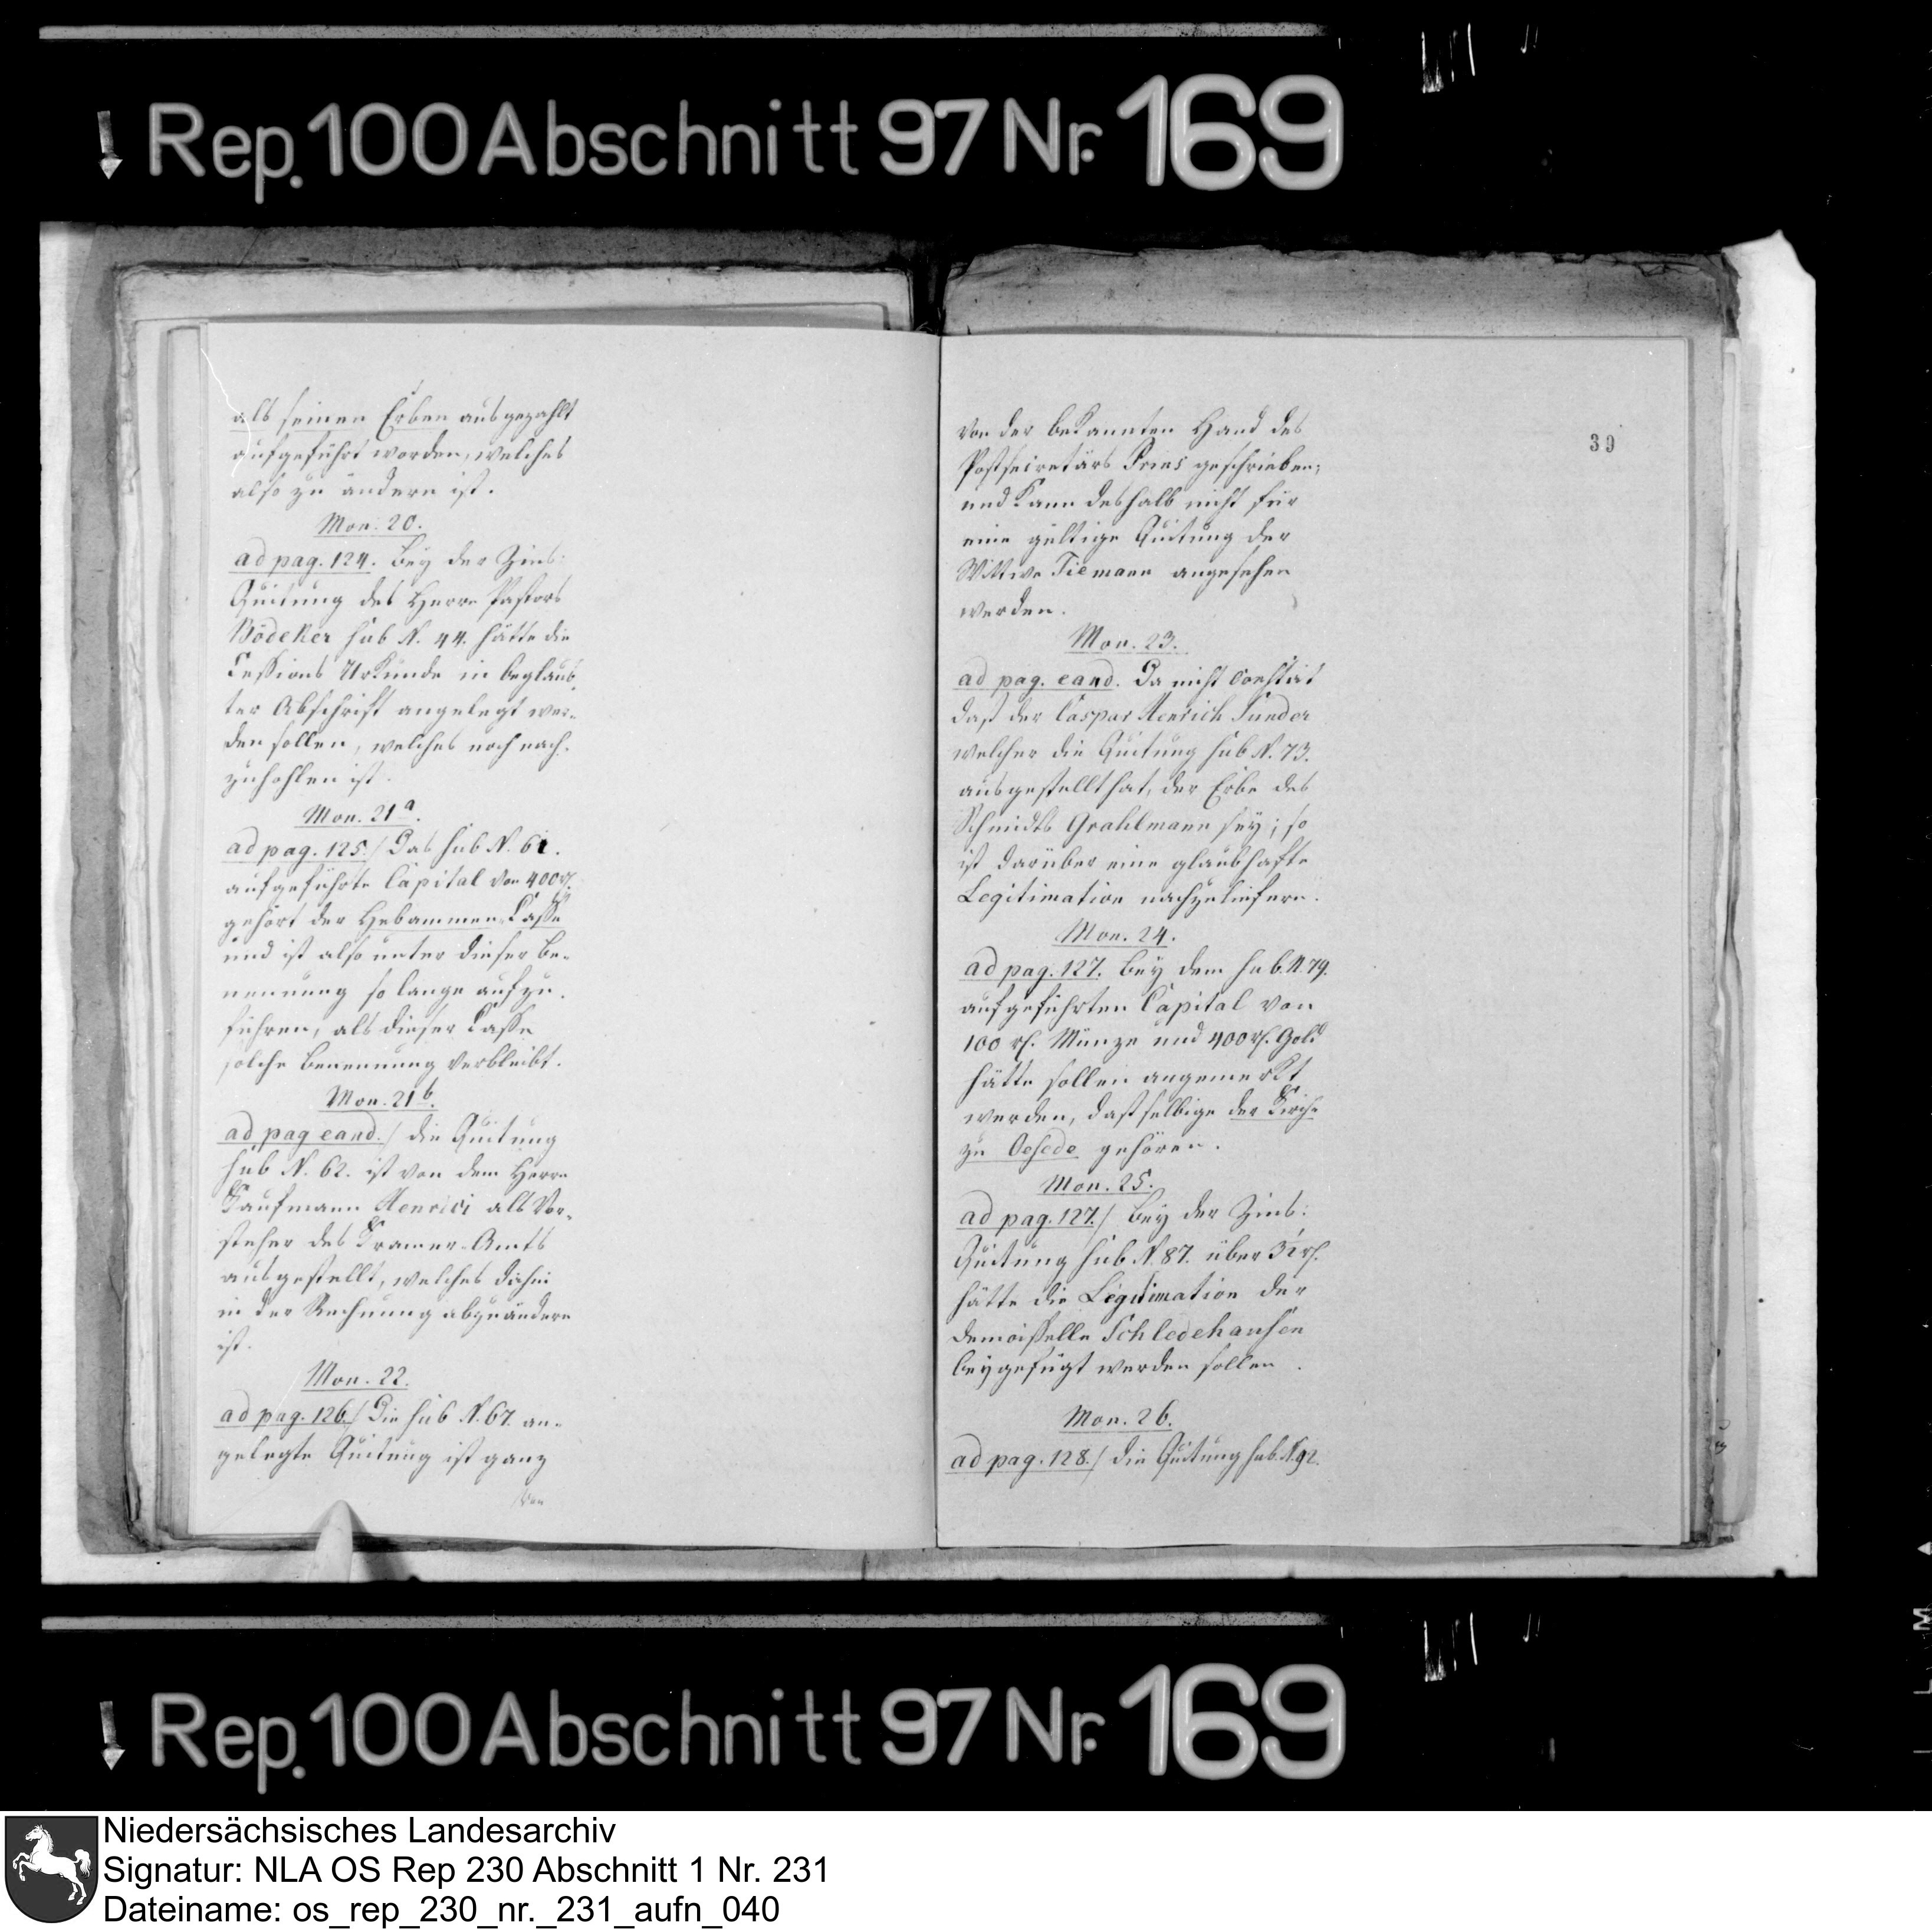 Rep. 100 Abschnitt 97 Nr. 169
als seinen Erben ausgezahlt
aufgeführt worden, welches
also zu ändern ist.
Mon. 20.
ad pag. 124. Bey der Zins:
Quitung des Herrn Pastors
Bödeker sub N. 44. hätte die
Cessions Urkunde in beglaub.
ter Abschrift angelegt wer-
den sollen, welches noch nach-
zuhohlen ist.
Mon. 21a.
ad pag. 125./ Das sub N. 61.
aufgeführte Capital von 400 rt.
gehört der Hebammen Casse
und ist also unter dieser Be-
nennung so lange aufzu-
führen, als dieser Casse
solche Benennung verbleibt.
Mon. 21b.
ad pag eand./ die Quitung
sub N. 62. ist von dem Herrn
Kaufmann Henrici als Vor-
steher des Kramer-Amts
ausgestellt, welches dahin
in der Rechnung abzuändern
ist.
Mon. 22.
ad pag. 126./ Die sub N. 67. an-
gelegte Quitung ist ganz
von
39
von der bekannten Hand des
Postsecretärs Prins geschrieben,
und kann deshalb nicht für
eine gültige Quitung der
Wittwe Tiemann angesehen
werden.
Mon. 23.
ad pag. eand. Da nicht constirt
daß der Caspar Henrich Sunder
welcher die Quitung sub N. 73.
ausgestellt hat, der Erbe des
Schmidts Grahlmann sey; so
ist darüber eine glaubhafte
Legitimation nachzuliefern.
Mon. 24.
ad pag. 127. Bey dem sub. N. 79.
aufgeführten Capital von
100 rt. Münze und 400 rt. Gold
hätte sollen angemerkt
werden, daß selbige der Kirche
zu Oesede gehören.
Mon. 25.
ad pag. 127./ Bey der Zins:
Quitung sub N. 87. über 3½ rt.
hätte die Legitimation der
Demoisselle Schledehausen
beygefügt werden sollen.
Mon. 26.
ad pag. 128./ die Quitung sub. N. 92.
Rep. 100 Abschnitt 97 Nr. 169
Niedersächsisches Landesarchiv
Signatur: NLA OS Rep 230 Abschnitt 1 Nr. 231
Dateiname: os_rep_230_nr._231_aufn_040